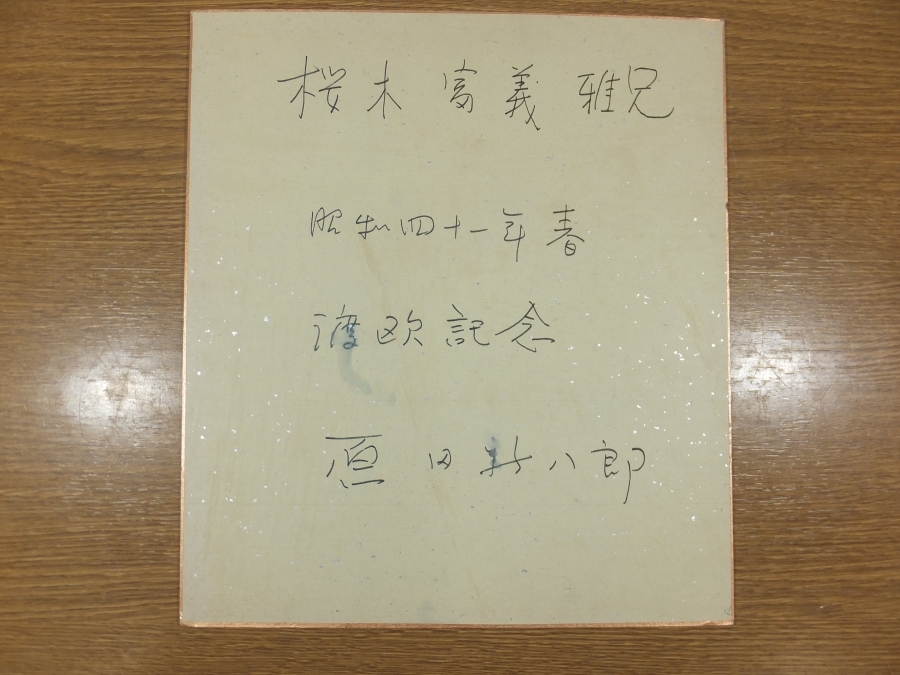 桜木富義雅兄
昭和四十一年春
渡欧記念
原田新八郎